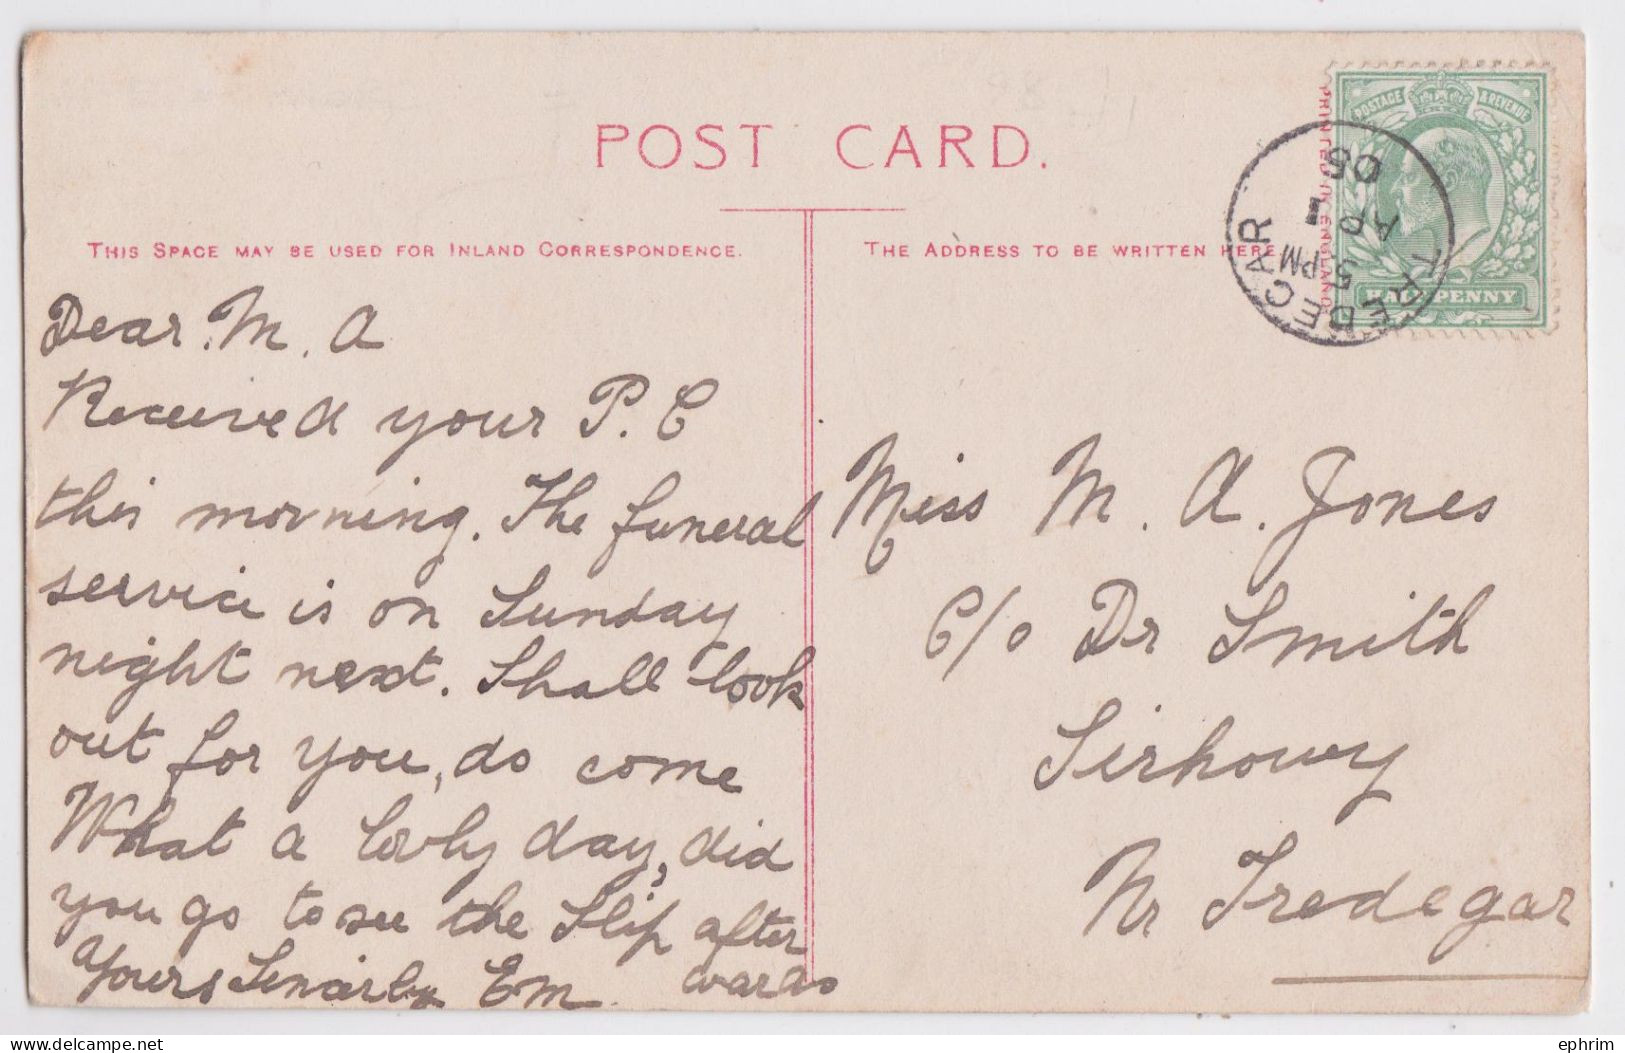 POST CARD.
THIS SPACE MAY BE USED FOR INLAND CORRESPONDENCE.
THE ADDRESS TO BE WRITTEN HERE
PRINTED IN ENGLAND
POSTAGE & REVENUE
HALF PENNY
TREDEGAR
5 PM
AP
05
Dear. M. A
Received your P. C
this morning. The funeral
service is on Sunday
night next. Shall look
out for you, do come
What a lovly day, did
you go to see the Slip after
wards
Yours Sincerly Em
Miss M. A. Jones
C/o Dr Smith
Sirhowy
Nr Tredegar
ephrim
delcampe.net